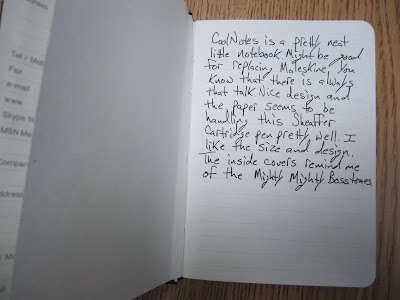 Address
Tel / Mob
Fax
e-mail
www
Skype N
MSN Me
Compan
Address
CoolNotes is a pretty neat
little notebook. Might be good
for replacing Moleskine. You
know that there is always
that talk. Nice design and
the paper seems to be
handling this Sheaffer
Cartridge pen pretty well. I
like the size and design.
The inside covers remind me
of the Mighty Mighty Bosstones.